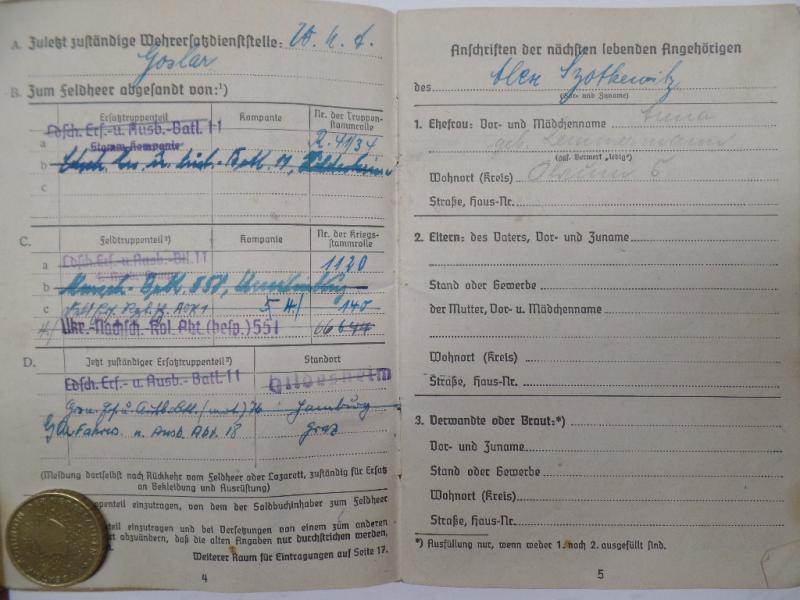 A. Zuletzt zuständige Wehrersatzdienststelle: W. M. A.
Goslar
B. Zum Feldheer abgesandt von:¹)
Ersatztruppenteil Kompanie Nr. der Truppenstammrolle
a Ldsch. Ers.-u. Ausb.-Batl. 11
Stamm-Kompanie
2. 41/34
b
c
C. Feldtruppenteil²) Kompanie Nr. der Kriegsstammrolle
a Ldsch. Ers.-u. Ausb.-Btl. 11 1120
b
c 5 140
Ukr.-Nachsch. Kol. Abt. (besp.) 551
D. Jetzt zuständiger Ersatztruppenteil²) Standort
Ldsch. Ers.- u. Ausb.- Batl. 11 Hildesheim
Hamburg
Fahrers. u. Ausb. Abt. 18 Graz
(Meldung dortselbst nach Rückkehr vom Feldheer oder Lazarett, zuständig für Ersatz
an Bekleidung und Ausrüstung)
uppenteil einzutragen, von dem der Soldbuchinhaber zum Feldheer
teil einzutragen und bei Versetzungen von einem zum anderen
abzuändern, daß die alten Angaben nur durchstrichen werden,
Weiterer Raum für Eintragungen auf Seite 17.
4
Anschriften der nächsten lebenden Angehörigen
des Alex Szotkewitz
(Vor- und Zuname)
1. Ehefrau: Vor- und Mädchenname Anna
geb.
(ggf. Vermerk „ledig")
Wohnort (Kreis)
Straße, Haus-Nr.
2. Eltern: des Vaters, Vor- und Zuname
Stand oder Gewerbe
der Mutter, Vor- u. Mädchenname
Wohnort (Kreis)
Straße, Haus-Nr.
3. Verwandte oder Braut:*)
Vor- und Zuname
Stand oder Gewerbe
Wohnort (Kreis)
Straße, Haus-Nr.
*) Ausfüllung nur, wenn weder 1. noch 2. ausgefüllt sind.
5